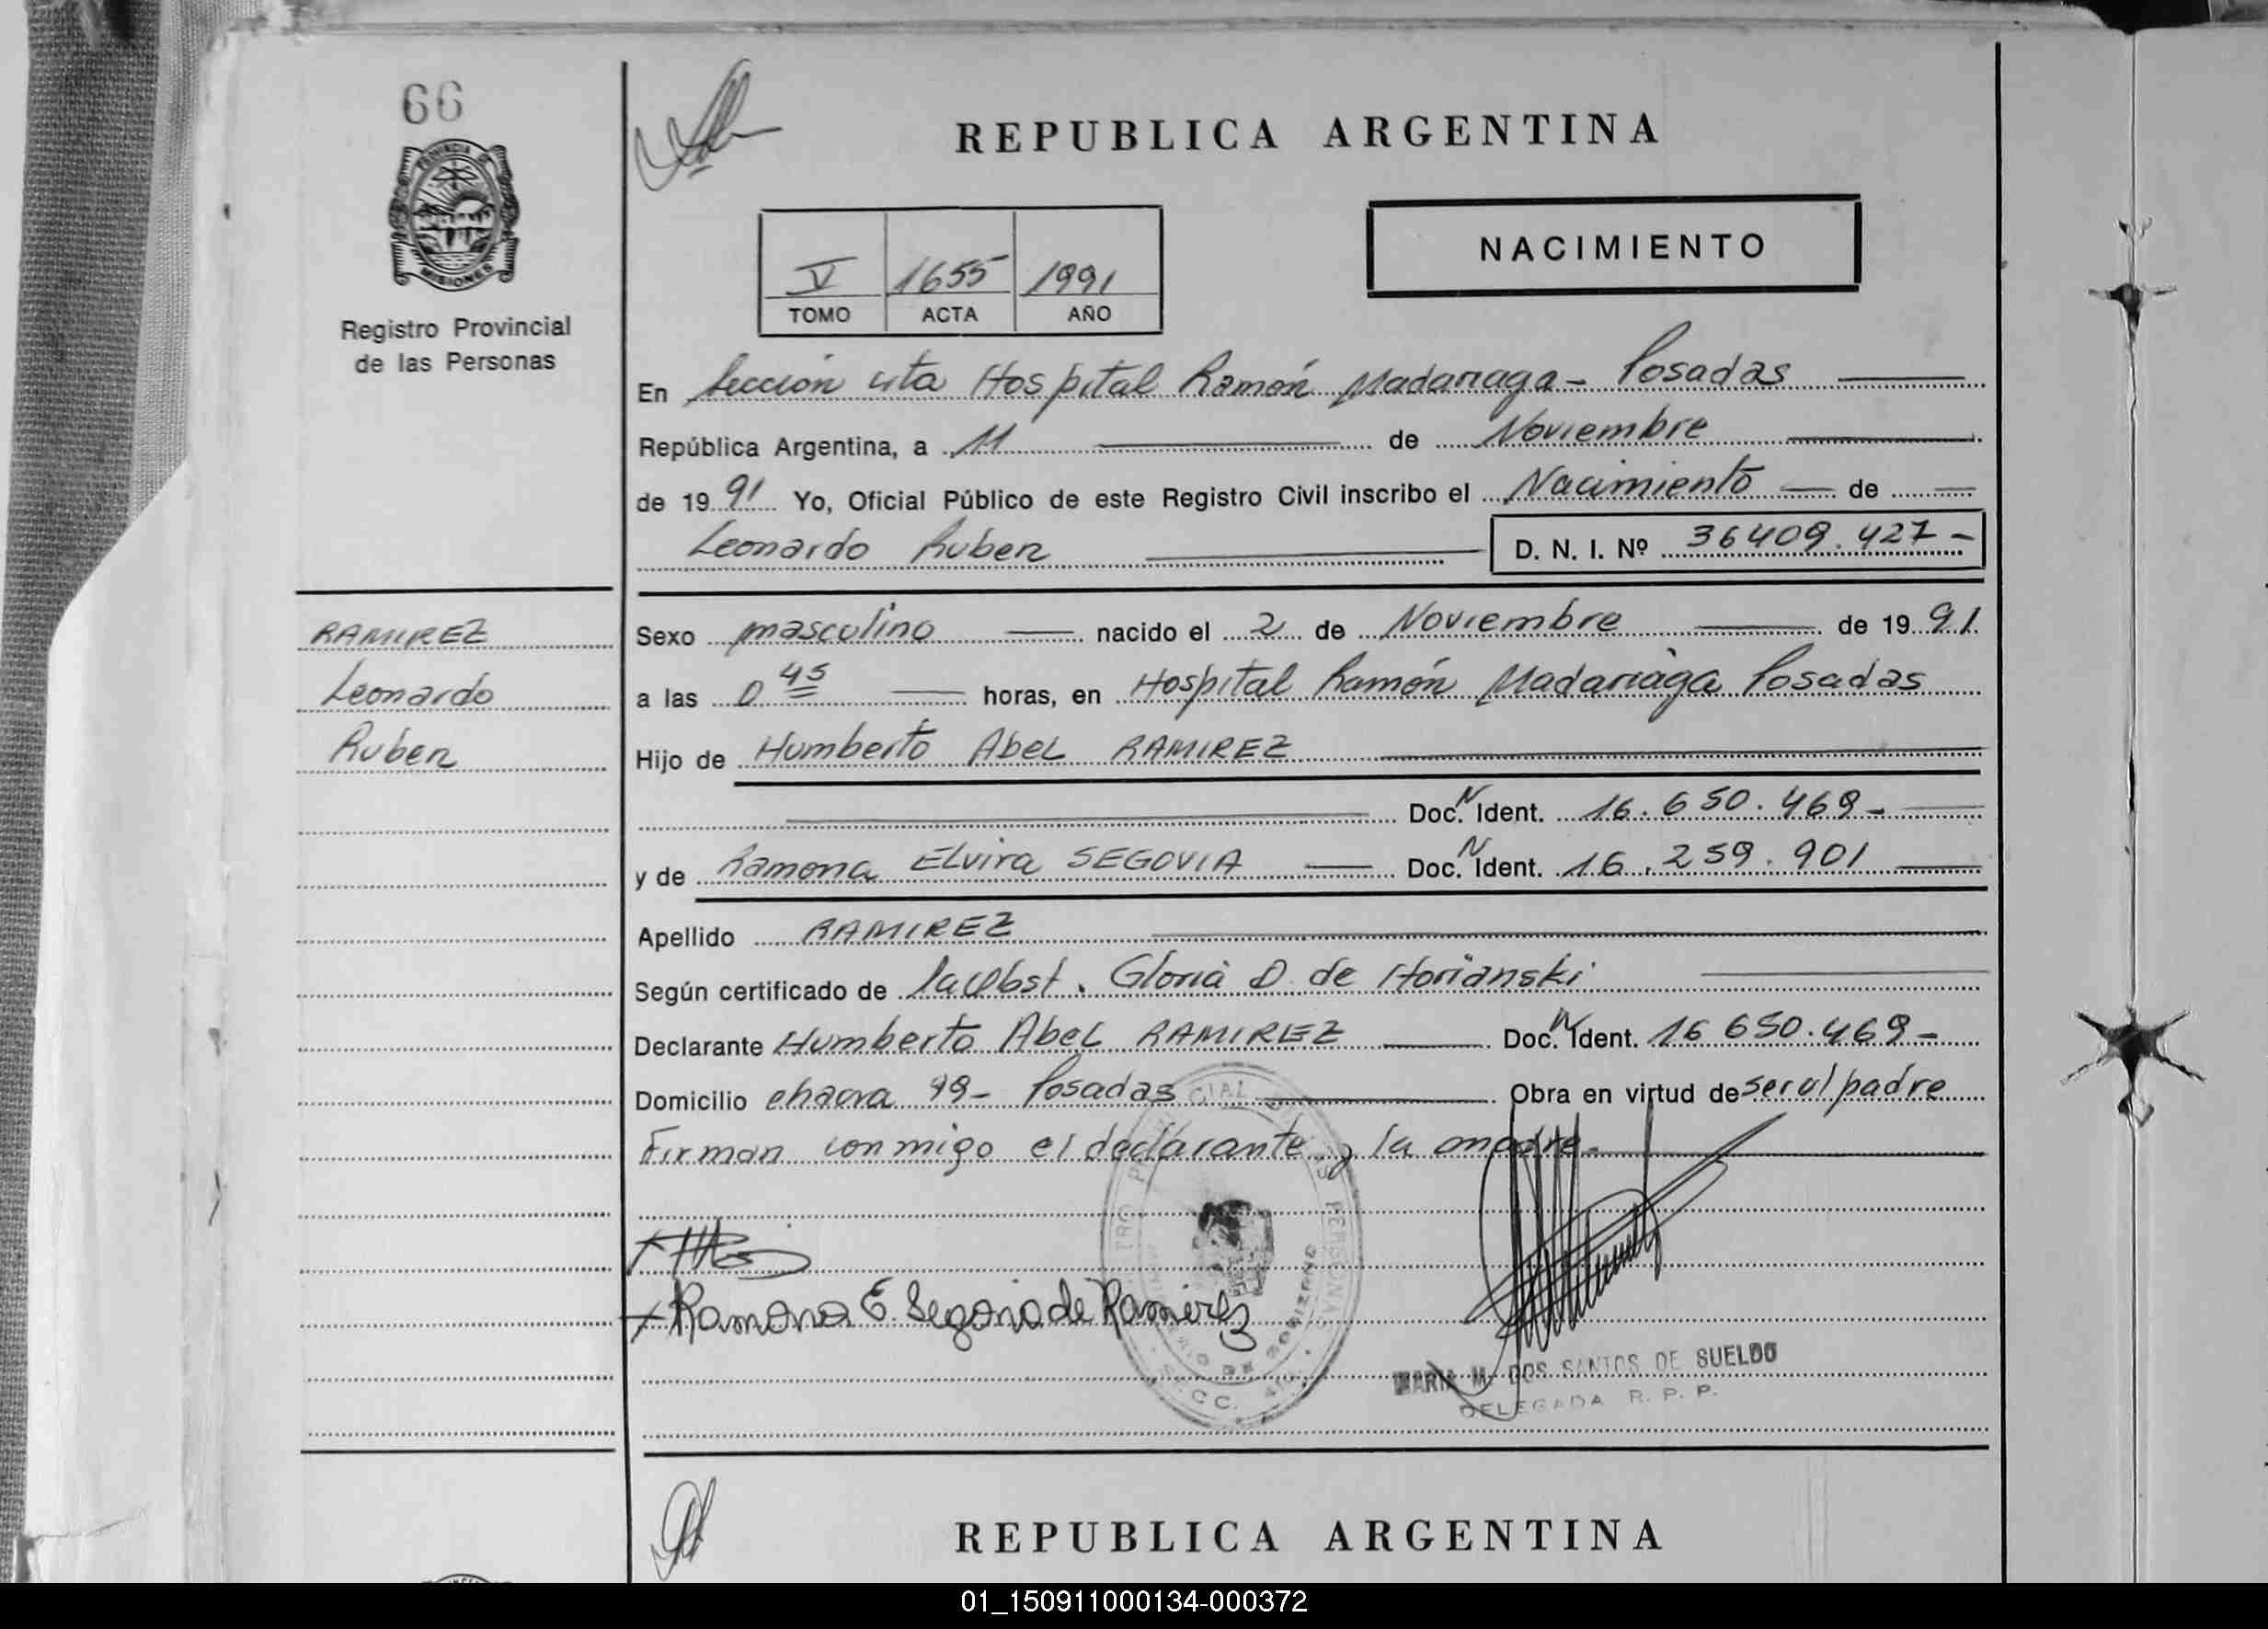 66
PROVINCIA DE
MISIONES
Registro Provincial
de las Personas
REPUBLICA ARGENTINA
NACIMIENTO
V 1655 1991
TOMO ACTA AÑO
En Sección 4ta Hospital Ramón Madariaga - Posadas
República Argentina, a 11 de Noviembre
de 1991 Yo, Oficial Público de este Registro Civil inscribo el Nacimiento de
Leonardo Ruben D. N. I. Nº 36409.427-
RAMIREZ
Leonardo
Ruben
Sexo masculino nacido el 2 de Noviembre de 1991
a las 0 45 horas, en Hospital Ramón Madariaga Posadas
Hijo de Humberto Abel RAMIREZ
Doc. N Ident. 16.650.469-
y de Ramona Elvira SEGOVIA Doc. N Ident. 16.259.901
Apellido RAMIREZ
Según certificado de la Obst. Gloria D. de Horianski
Declarante Humberto Abel RAMIREZ Doc. N Ident. 16 650.469-
Domicilio chacra 99- Posadas Obra en virtud de ser el padre
Firman conmigo el declarante y la madre.
Ramona E. Segovia de Ramirez
MARIA M. DOS SANTOS DE SUELDO
DELEGADA R. P. P.
REPUBLICA ARGENTINA
01_150911000134-000372